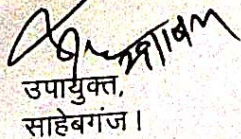 उपायुक्त,
साहेबगंज।